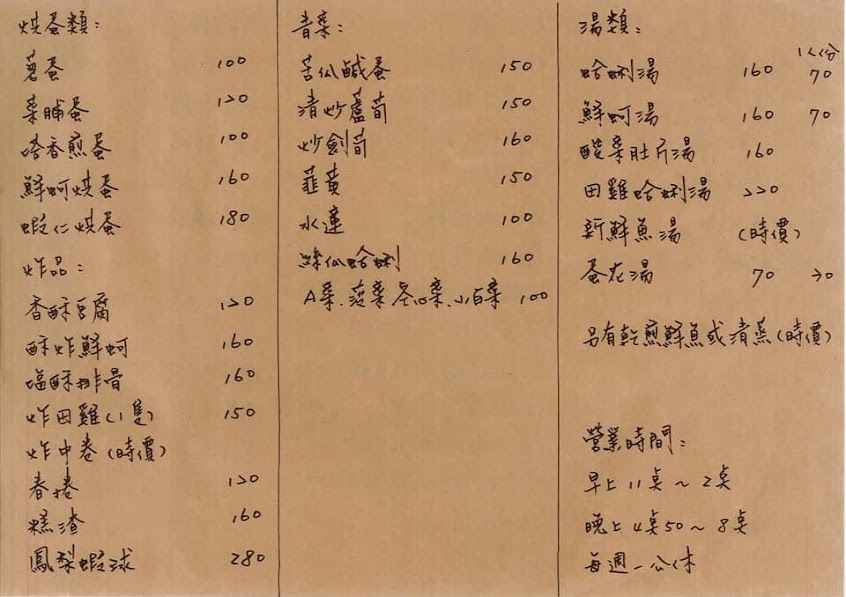 烘蛋類：
蔥蛋 100
菜脯蛋 120
塔香煎蛋 100
鮮蚵烘蛋 160
蝦仁烘蛋 180
炸品：
香酥豆腐 120
酥炸鮮蚵 160
塩酥排骨 160
炸田雞(1隻) 150
炸中卷(時價)
春捲 120
糕渣 160
鳳梨蝦球 280
青菜：
苦瓜鹹蛋 150
清炒蘆荀 150
炒劍荀 160
韮黃 150
水蓮 100
絲瓜蛤蜊 160
A菜、菠菜、空心菜、小白菜 100
湯類：
1人份
蛤蜊湯 160 70
鮮蚵湯 160 70
酸菜肚片湯 160
田雞蛤蜊湯 220
新鮮魚湯 (時價)
蛋花湯 70 30
另有乾煎鮮魚或清蒸(時價)
營業時間：
早上11點～2點
晚上4點50～8點
每週一公休